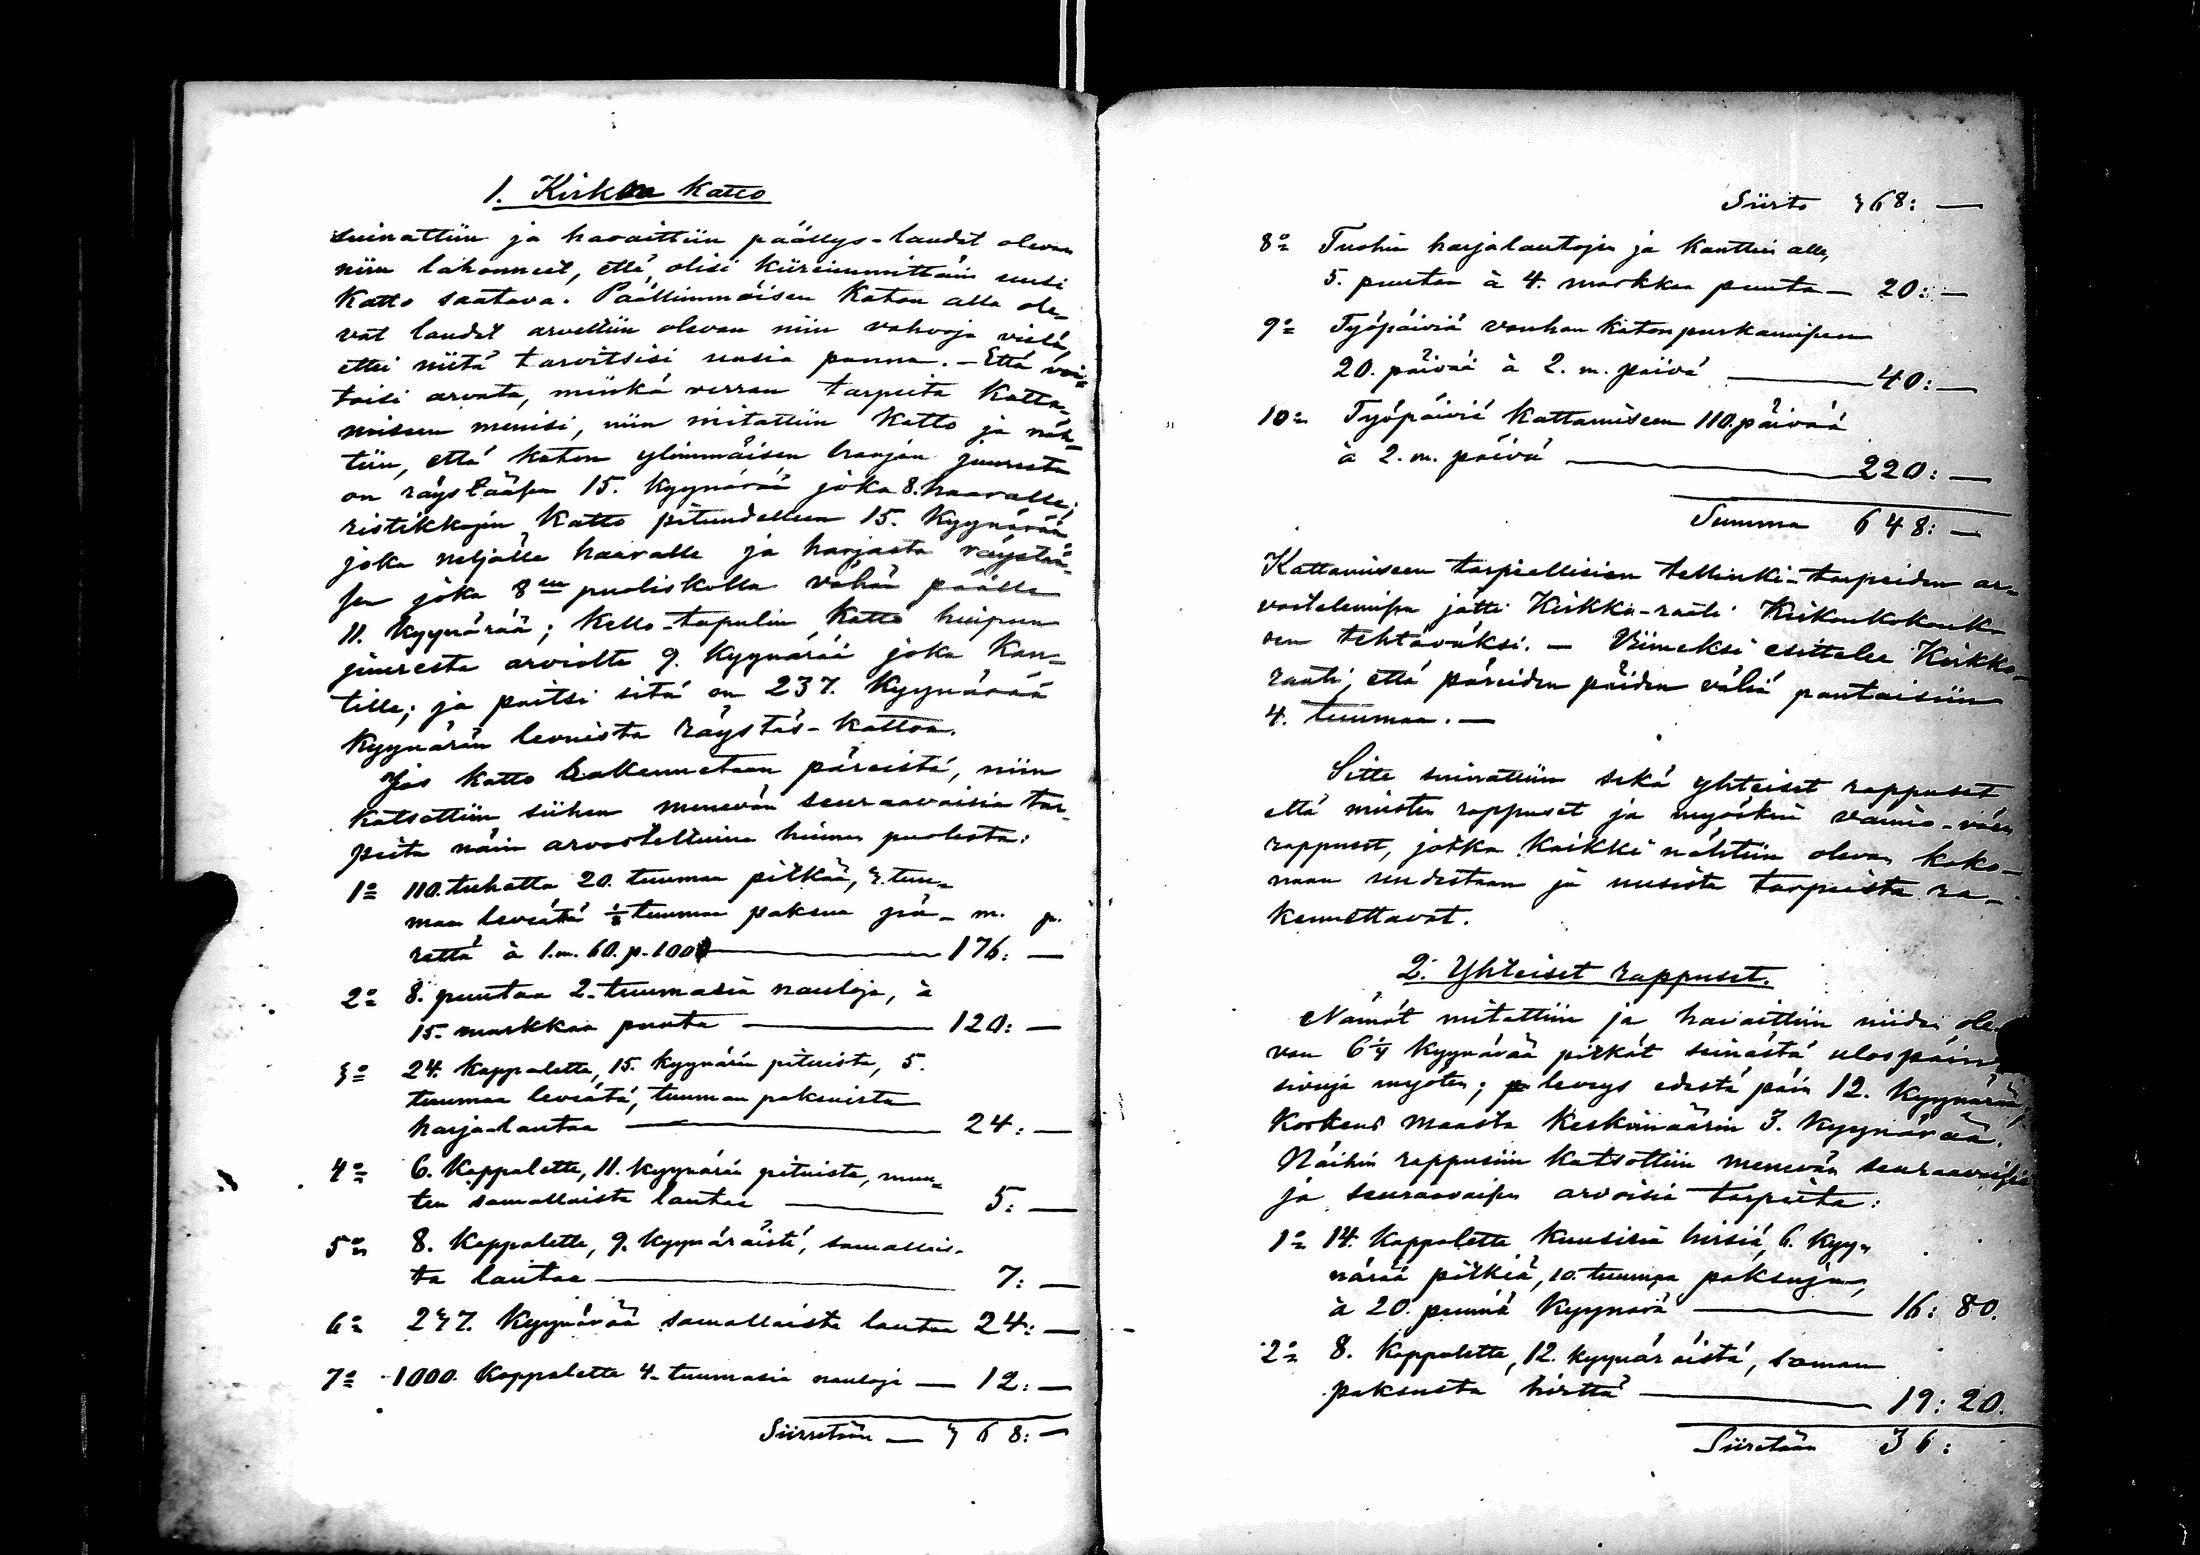 1. Kirkon Katto
suinattiin ja havaittiin päällys-laudat olevan
niin lahonneet, että olisi kiireimmittäin uusi
Katto saatava. Päällimmäisen Katon alla ole-
vat laudat arveltiin olevan niin vahvoja vielä,
ettei niitä tarvitsisi uusia panna. - Että voi-
taisi arvata, minkä verran tarpeita Katta-
miseen menisi, niin mitattiin Katto ja näh-
tiin, että katon ylimmäisen harjan juuresta
on räystääsen 15. Kyynärää joka 8. haaralle;
ristikkojen Katto pituudelleen 15. Kyynärää
joka neljälle haaralle ja harjasta räystää-
sen joka 8en puoliskolla vähän päälle
11. Kyynärää; Kello-tapulin Katto huipun
juuresta arviolta 9. Kyynärää joka Kan-
tille; ja paitsi sitä on 237. Kyynärää
Kyynärän levuista räystäs-Kattoa.
Jos Katto rakennetaan päreistä, niin
Katsottiin siihen menevän seuraavaisia tar-
peita näin arvosteltuina hinnan puolesta:
1o 110. tuhatta 20. tuumaa pitkää, 3. tuu-
maa leveätä 1/8 tuumaa paksua pä- m. p.
rettä à 1. m. 60. p. 1000 176: —
2o 8. puntaa 2-tuumasia nauloja, à
15. markkaa punta — 120: —
3o 24. Kappaletta, 15. kyynärän pituista, 5.
tuumaa leveätä, tuuman paksuista
harja-lautaa — 24: —
4o 6. Kappaletta, 11. kyynärän pituista, muu-
ten samallaista lautaa — 5: —
5o 8. Kappaletta, 9. Kyynäräistä, samallais-
ta lautaa — 7: —
6o 237. Kyynärää samallaista lautaa 24: —
7o 1000. Kappaletta 4-tuumasia nauloja — 12: —
Siirretään — 368: —
Siirto 368: —
8o Tuohia harjalautojen ja Kanttien alle,
5. puntaa à 4. markkaa punta — 20: —
9o Työpäiviä vanhan Katon purkamisen
20. päivää à 2. m. päivä — 40: —
10o Työpäiviä Kattamiseen 110. päivää
à 2. m. päivä — 220: —
Summa 648: —
Kattamiseen tarpeellisien tellinki-tarpeiden ar-
vostelemisen jätti Kirkko-raati Kirkonkokouk-
sen tehtäväksi. — Viimeksi esittelee Kirkko-
raati, että päreiden päiden väliä pantaisiin
4. tuumaa. —
Sitte suinattiin sekä yhteiset rappuset
että miesten rappuset ja myöskin vaimo-väen
rappuset, jotka Kaikki nähtiin olevan koko-
naan uudestaan ja uusista tarpeista ra-
kennettavat.
2. Yhteiset rappuset.
Nämät mitattiin ja havaittiin niiden ole-
van 6 1/4 Kyynärää pitkät seinästä ulospäin
sivuja myöten; leveys edestä päin 12. Kyynärää,
Korkeus maasta Keskimäärin 3. Kyynärää.
Näihin rappusiin Katsottiin menevän seuraavaisia
ja seuraavaisen arvoisia tarpeita:
1o 14. Kappaletta Kuusisia hirsiä, 6. Kyy-
närää pitkiä, 10. tuumaa paksuja,
à 20. penniä Kyynärä — 16: 80.
2o 8. Kappaletta, 12. kyynäräistä, saman
paksusta hirttä — 19: 20.
Siiretään 36: